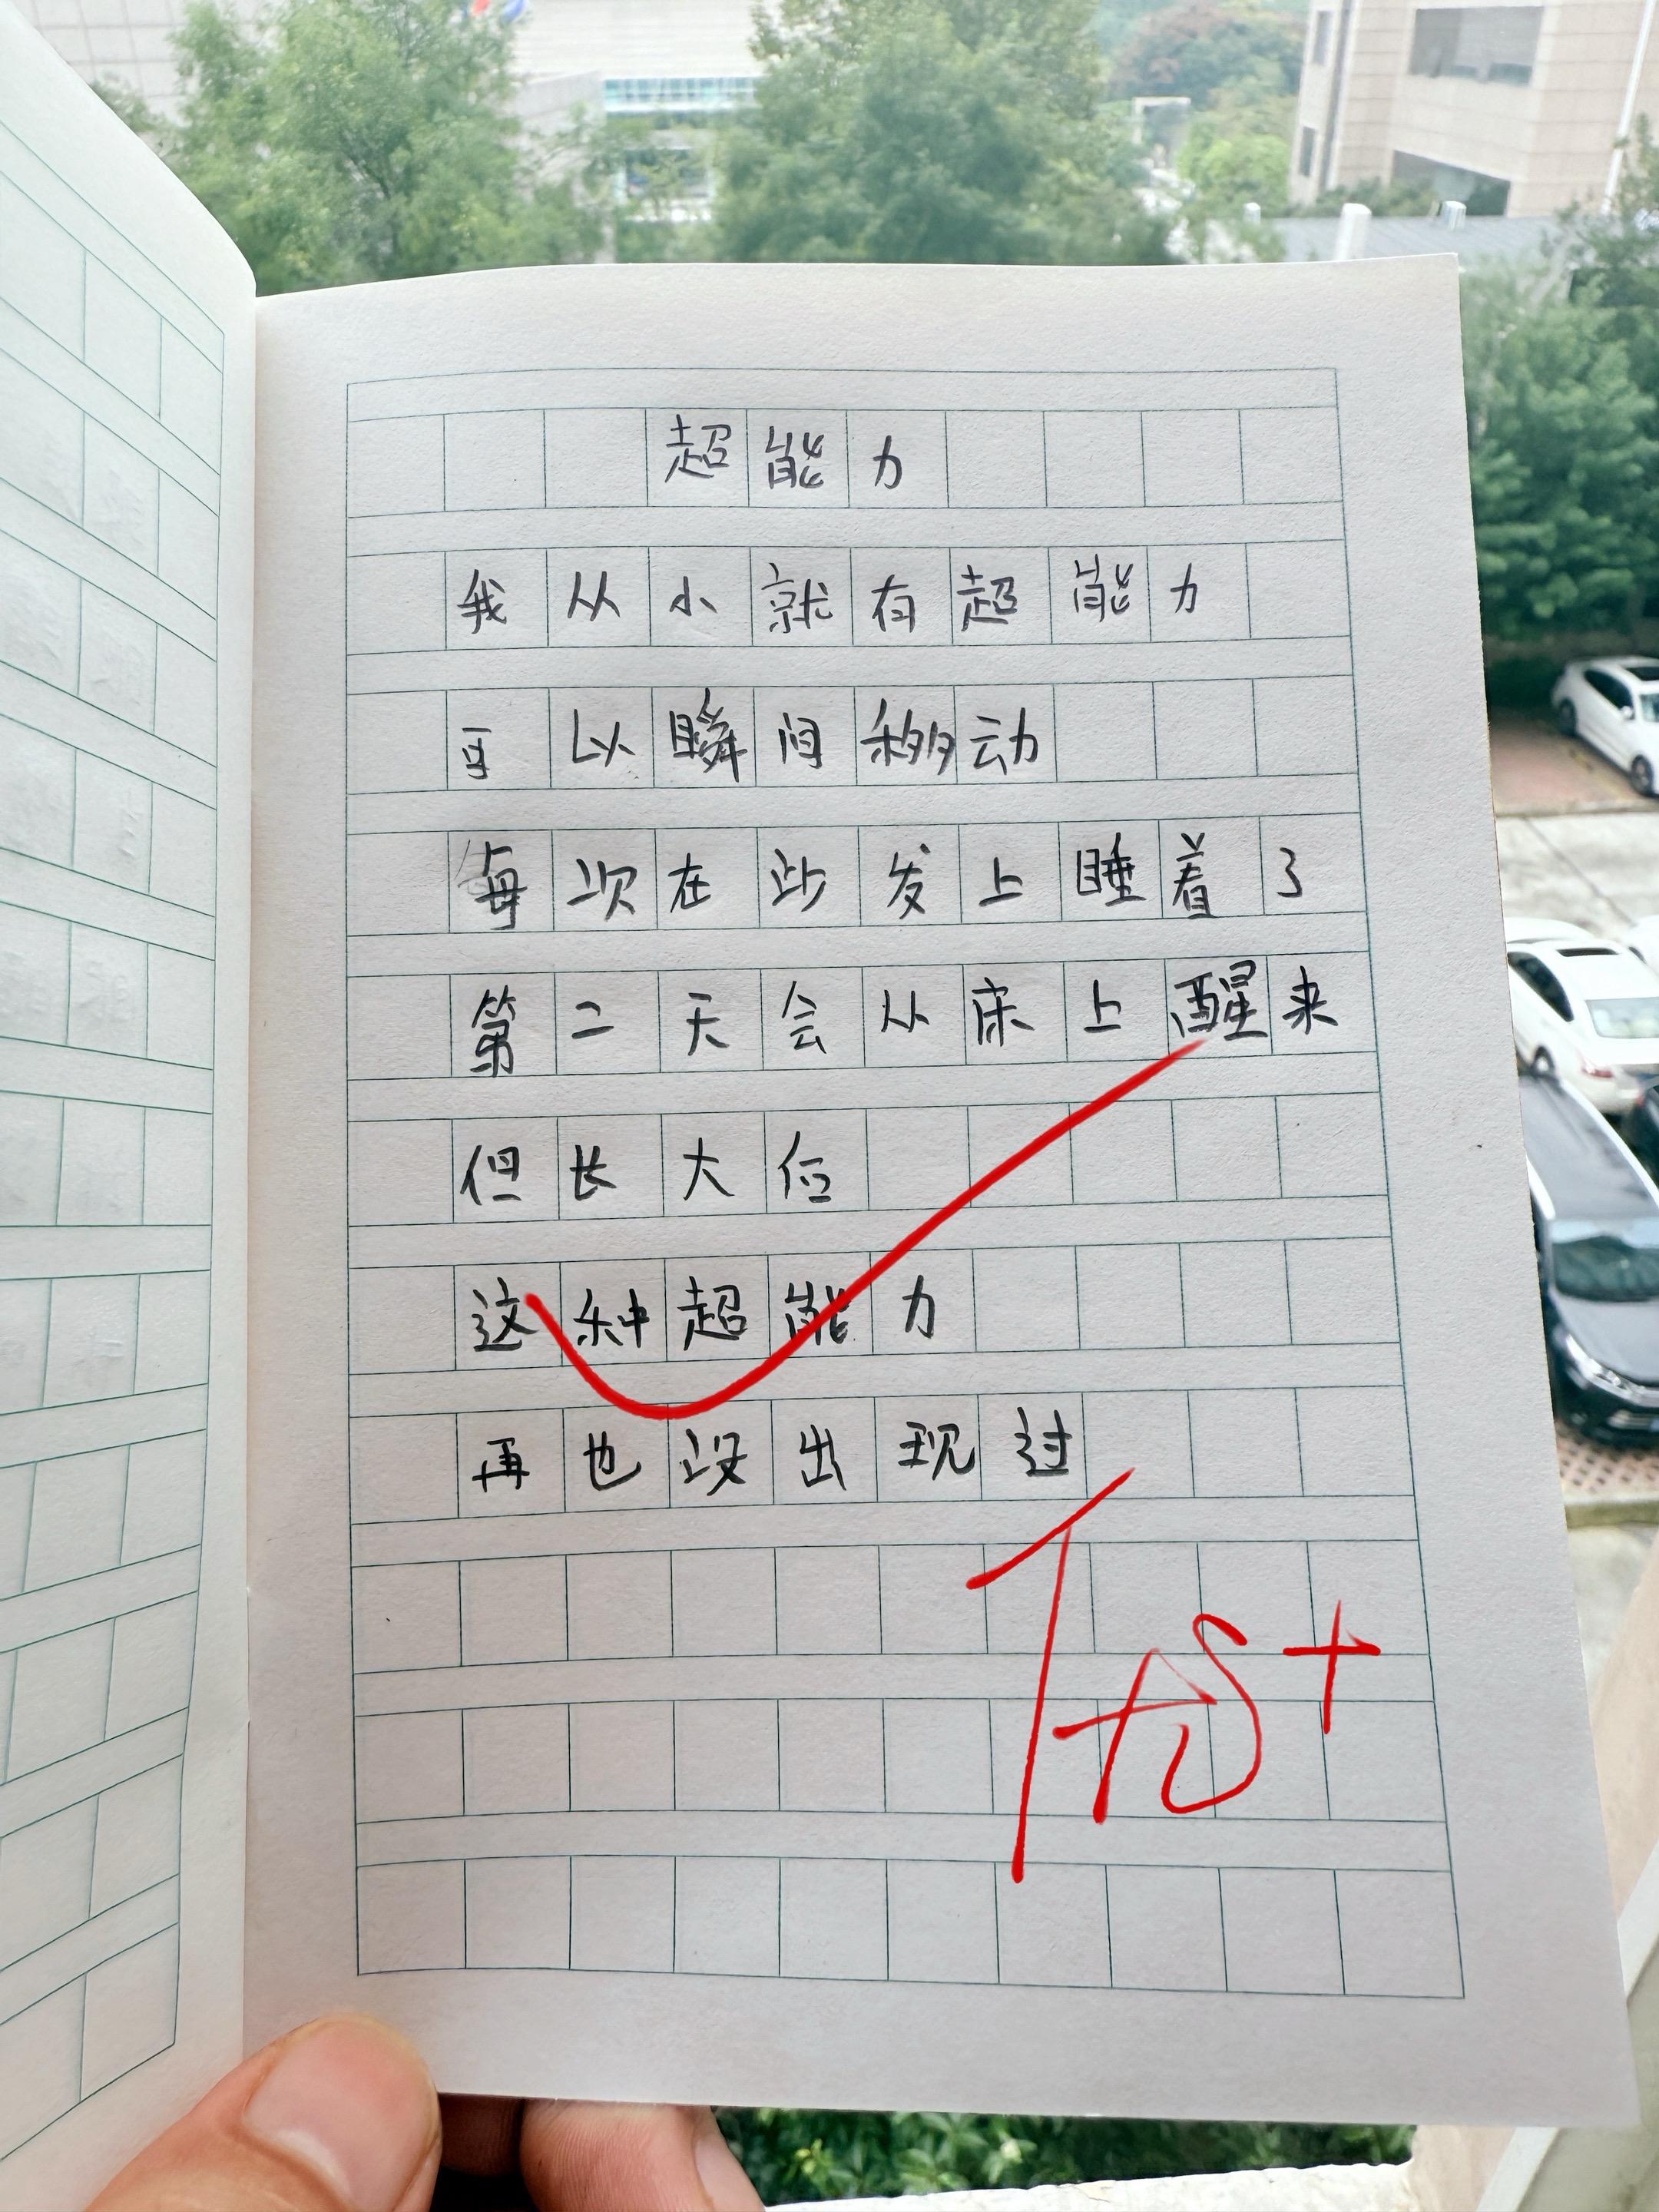 超能力
我从小就有超能力
可以瞬间移动
每次在沙发上睡着了
第二天会从床上醒来
但长大后
这种超能力
再也没出现过